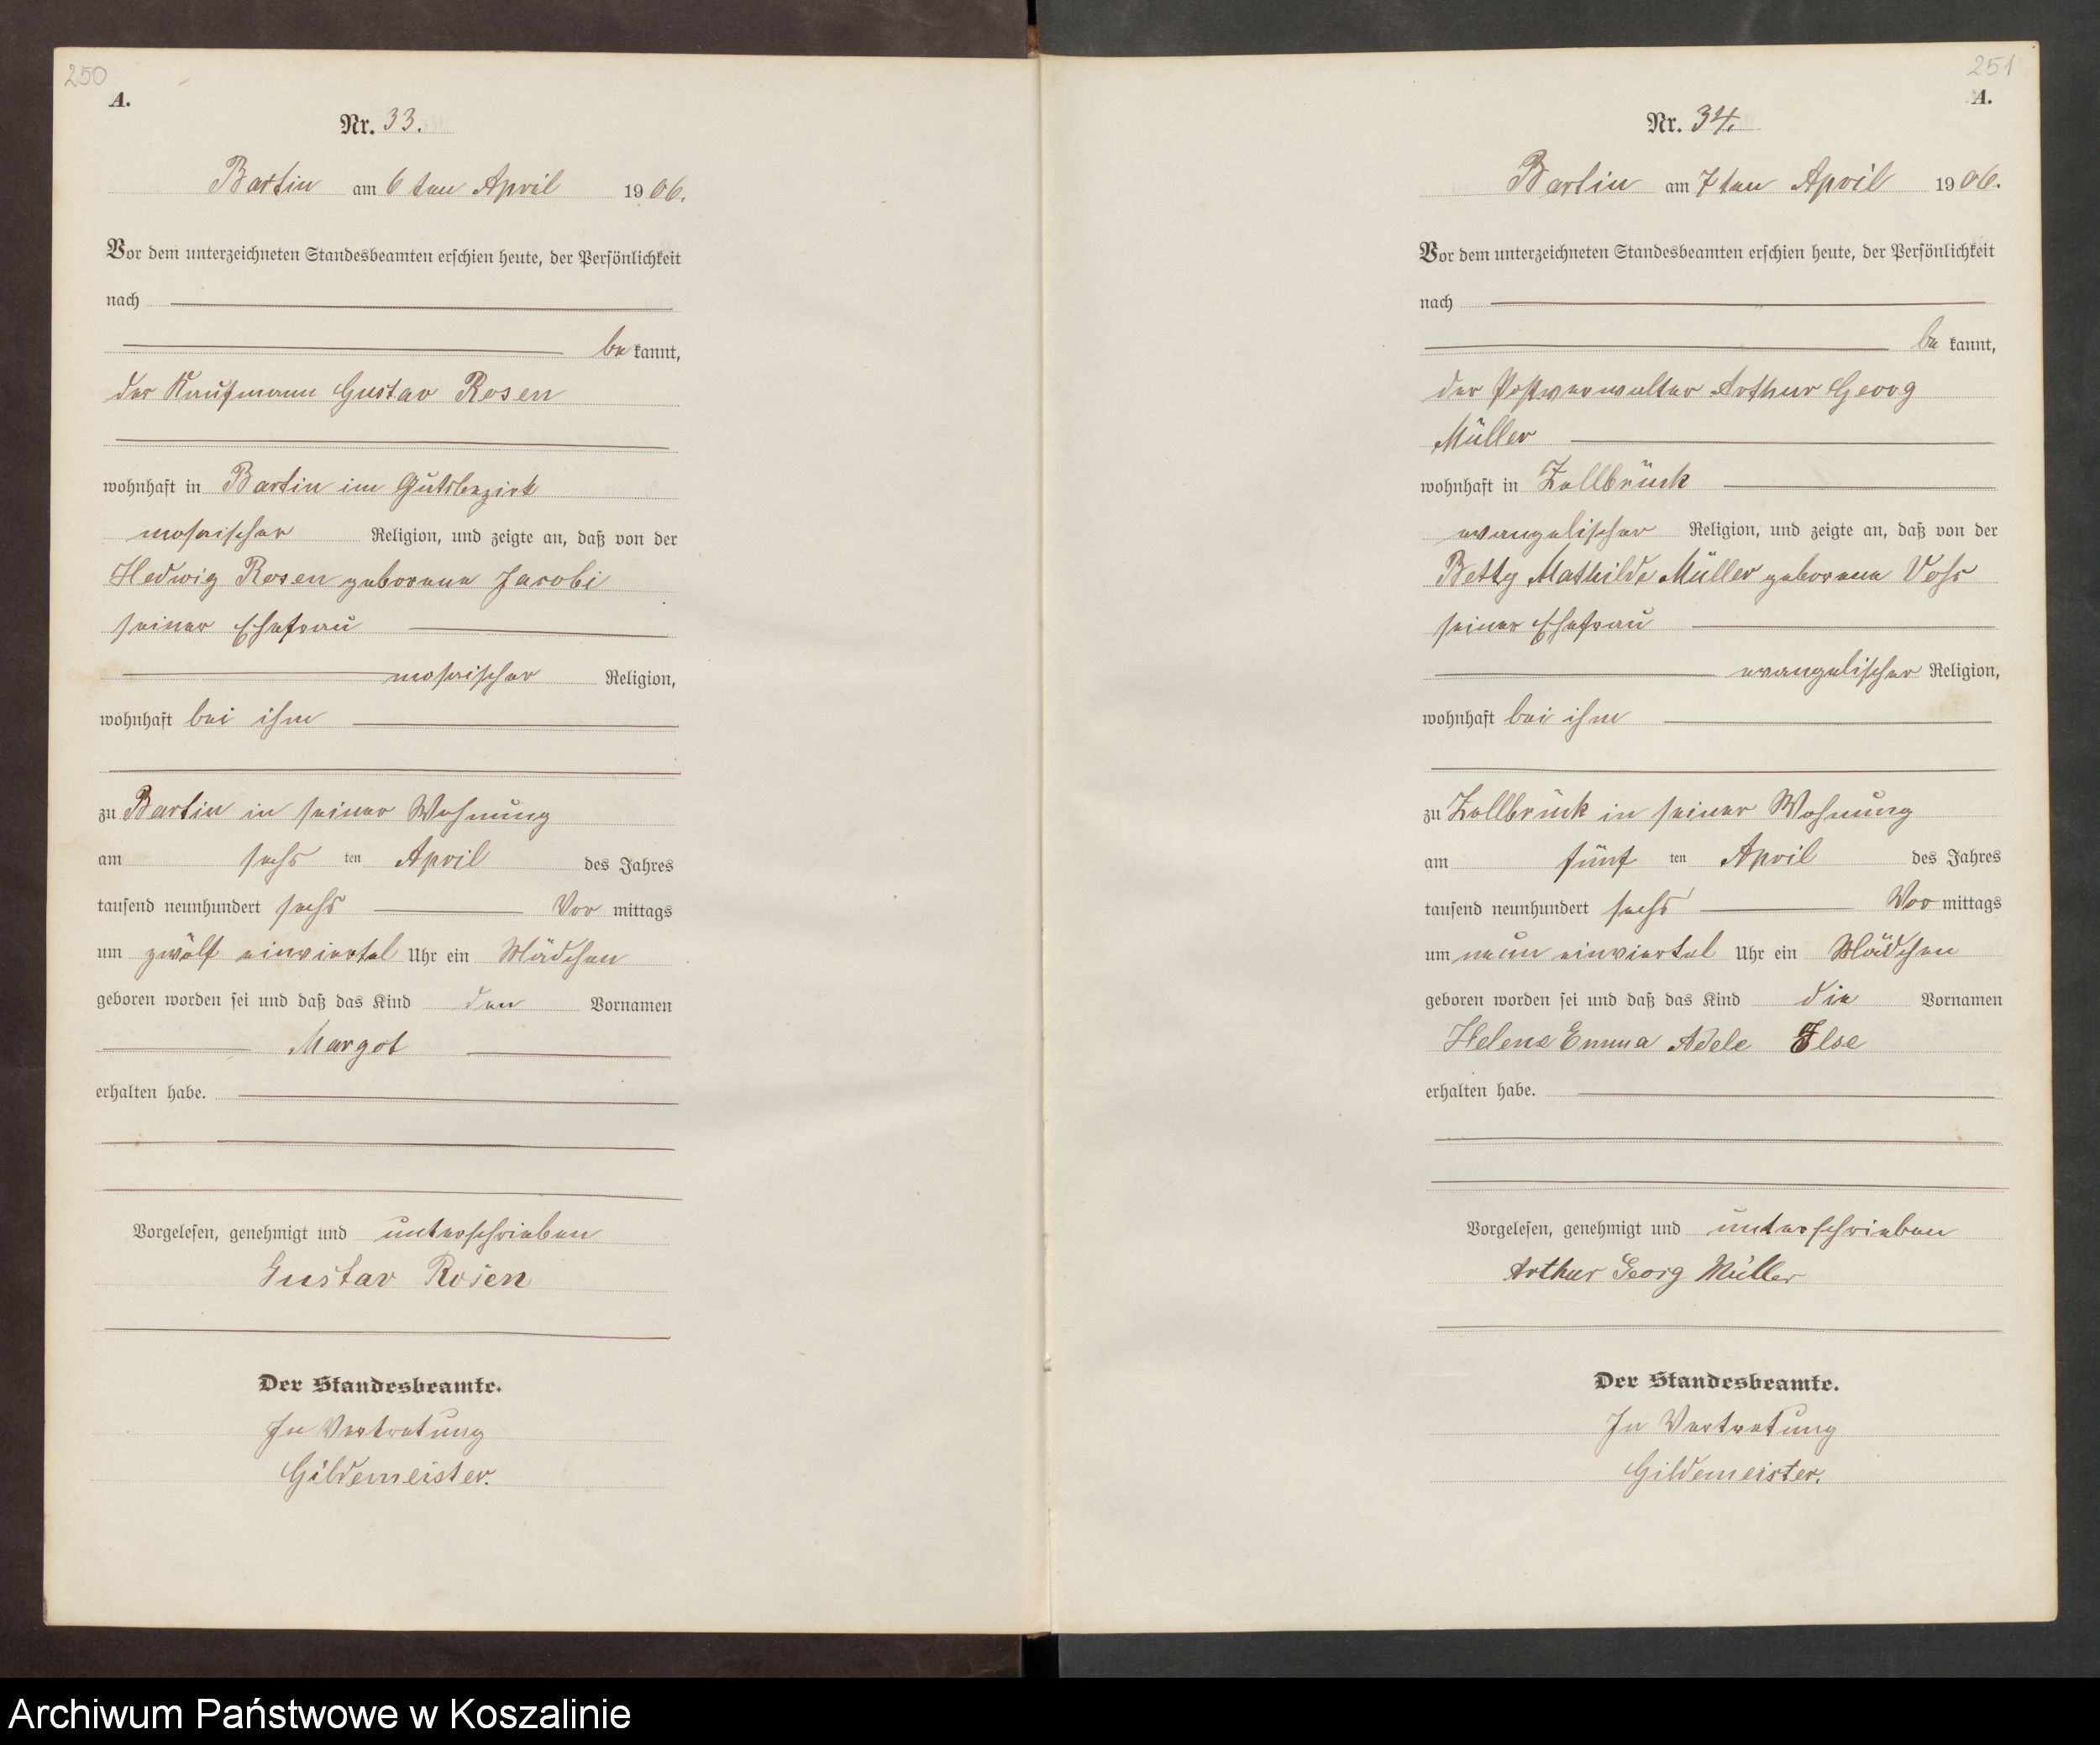 250
A.
Nr. 33.
Bartin am 6 ten April 1906.
Vor dem unterzeichneten Standesbeamten erschien heute, der Persönlichkeit
nach
be kannt,
der Kaufmann Gustav Rosen
wohnhaft in Bartin im Gutsbezirk
mosaischer Religion, und zeigte an, daß von der
Hedwig Rosen geborene Jacobi
seiner Ehefrau
mosaischer Religion,
wohnhaft bei ihm
zu Bartin in seiner Wohnung
am sechs ten April des Jahres
tausend neunhundert sechs Vor mittags
um zwölf einviertel Uhr ein Mädchen
geboren worden sei und daß das Kind den Vornamen
Margot
erhalten habe.
Vorgelesen, genehmigt und unterschrieben
Gustav Rosen
Der Standesbeamte.
In Vertretung
Gildemeister.
251
A.
Nr. 34.
Bartin am 7 ten April 1906.
Vor dem unterzeichneten Standesbeamten erschien heute, der Persönlichkeit
nach
be kannt,
der Postverwalter Arthur Georg
Müller
wohnhaft in Zollbrück
evangelischer Religion, und zeigte an, daß von der
Betty Mathilde Müller geborene Voß
seiner Ehefrau
evangelischer Religion,
wohnhaft bei ihm
zu Zollbrück in seiner Wohnung
am fünf ten April des Jahres
tausend neunhundert sechs Vor mittags
um neun einviertel Uhr ein Mädchen
geboren worden sei und daß das Kind die Vornamen
Helene Emma Adele Else
erhalten habe.
Vorgelesen, genehmigt und unterschrieben
Arthur Georg Müller
Der Standesbeamte.
In Vertretung
Gildemeister.
Archiwum Państwowe w Koszalinie